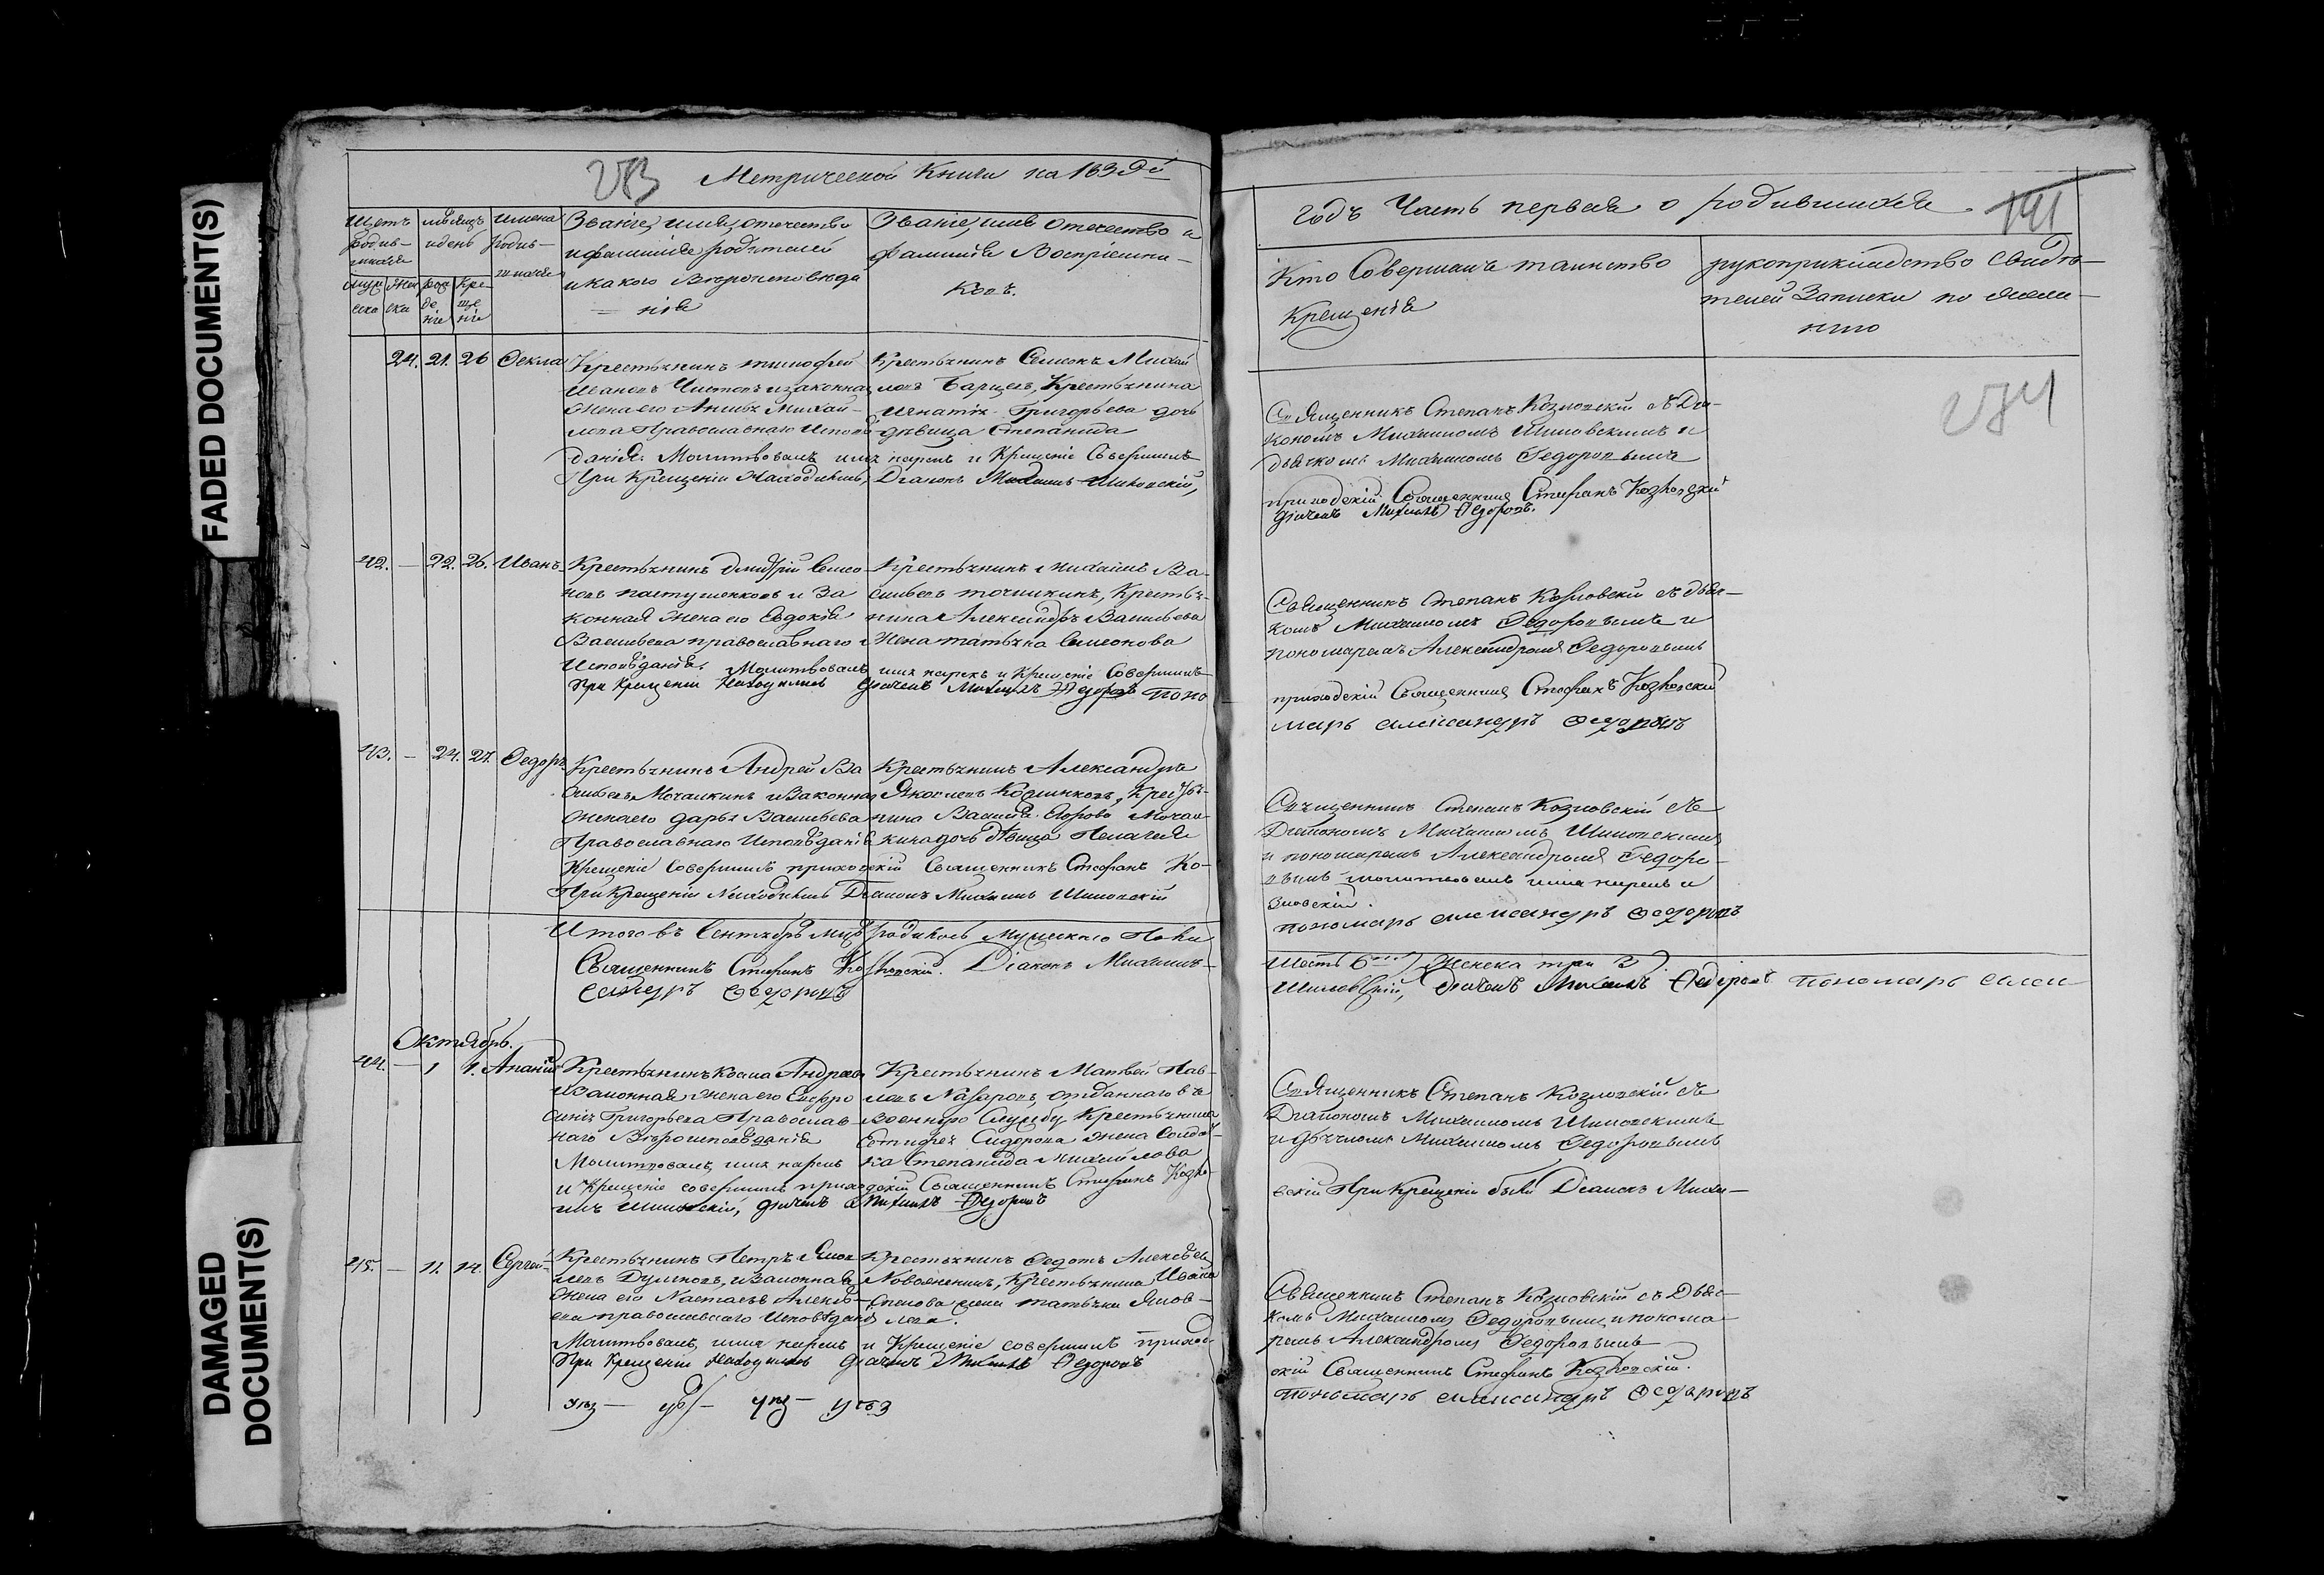 FADED DOCUMENT(S)
DAMAGED
DOCUMENT(S)
Метрической Книги на 1839й
Щетъ родив-
шихся
муж
еска
жен
ска
мѣсяцъ
и день
рож
де
нія
кре
ще
нія
имена
родив-
шихся
Званіе, имя, отечество
и фамилія родителей
и какого Вѣроисповѣда
нія
Званіе, имя Отечество и
фамилія Воспріемни-
ковъ.
24. 21. 26 Ѳекла
Крестьянинъ тимофей
Ивановъ Чистовъ и законная
жена его Михай-
лова Православнаго Исповѣ
данія. Молитвовалъ имя нарекъ и Крещеніе Совершилъ
При Крещеніи Находились, Діаконъ Михаилъ Шиловскій,
Крестьянинъ Семенъ Михай
ловъ Крестьянина
Игнатія Григорьева дочь
дѣвица Степанида
42. — 22. 26. Иванъ
Крестьянинъ дмитрій Семе
новъ пастушенковъ и За
конная Жена его Евдокія
Васильева православнаго
Исповѣданія. Молитвовалъ имя нарекъ и Крещеніе Совершилъ
При Крещеніи Находились дьячекъ Михаилъ Ѳедоровъ поно
Крестьянинъ Михаилъ Ва-
сильевъ точилкинъ, Крестья-
нина Александра Васильева
Жена татьяна Семенова
43. — 24. 27. Ѳедоръ
Крестьянинъ Андрей Ва
сильевъ Мочалкинъ и Законная
Жена его дарья Васильева
Православнаго Исповѣданія
Крещеніе Совершилъ приходскій Священникъ Стефанъ Ко-
При Крещеніи Находились Діаконъ Михаилъ Шиловскій
Крестьянинъ Александръ
Яковлевъ Крестья-
нина Василія Егорова Мочал
кина дочь дѣвица Пелагея
Итого въ Сентябрѣ мцѣ родилось Мужескаго Пола
Священникъ Стефанъ Козловскій. Діаконъ Михаилъ
ксандръ Ѳедоровъ
Октябрь.
44. — 1 1. Ананій
Крестьянинъ Косма Андреевъ
и Законная жена его Евфро
синія Григорьева Православ-
наго Вѣроисповѣданія
Молитвовалъ, имя нарекъ
и Крещеніе совершилъ приходскій Священникъ Стефанъ Козло-
илъ Шиловскій, дьячекъ Михаилъ Ѳедоровъ
Крестьянинъ Матвей Пав-
ловъ Назаровъ, отданнаго въ
Военную Службу Крестьянина
Сидорова жена Солдат-
ка Степанида Михайлова
45. — 11. 14. Сергей
Крестьянинъ Петръ Яков
левъ и Законная
жена его Настасья Алексѣ-
ева православнаго Исповѣданія
Молитвовалъ, имя нарекъ и Крещеніе совершилъ приход-
При Крещеніи Находились дьячекъ Михаилъ Ѳедоровъ
Крестьянинъ Ѳедотъ Алексѣевъ
Крестьянина Ивана
жена татьяна Яков-
лева.
годъ Часть первая о родившихся
191
Кто Совершалъ таинство
Крещенія
рукоприкладство свидѣ-
телей Записки по желан-
нію
274
Священникъ Степанъ Козловскій съ Діа-
кономъ Михаиломъ Шиловскимъ и
дьячкомъ Михаиломъ Ѳедоровымъ
приходскій Священникъ Стефанъ Козловскій
дьячекъ Михаилъ Ѳедоровъ.
Священникъ Степанъ Козловскій съ дьяч-
комъ Михаиломъ Ѳедоровымъ и
пономаремъ Александромъ Ѳедоровымъ
приходскій Священникъ Стефанъ Козловскій
марь александръ Ѳедоровъ
Священникъ Степанъ Козловскій съ
Діакономъ Михаиломъ Шиловскимъ
и пономаремъ Александромъ Ѳедоро-
вымъ молитвовалъ имя нарекъ и
зловскій.
пономарь александръ Ѳедоровъ
Шесть 6 Женска три 3
Шиловскій, Дьячекъ Михаилъ Ѳедоровъ пономарь але
Священникъ Степанъ Козловскій съ
Діакономъ Михаиломъ Шиловскимъ
и дьячкомъ Михаиломъ Ѳедоровымъ
вскій При Крещеніи были Діаконъ Миха-
Священникъ Степанъ Козловскій съ Дьяч-
комъ Михаиломъ Ѳедоровымъ и понома-
ремъ Александромъ Ѳедоровымъ
скій Священникъ Стефанъ Козловскій.
пономарь александръ Ѳедоровъ